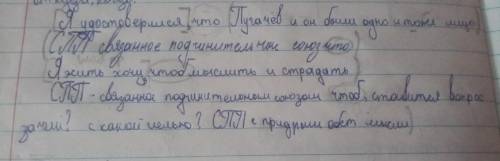 [Я удостоверился], что (Пугачёв и он были одно и то же лицо)
(СПП связанное подчинительным союз что)
Я жить хочу, чтоб мыслить и страдать
СПП - связанное подчинительным союзом чтоб, ставится вопрос
зачем? с какой целью? (СПП с придрым обст. цели)